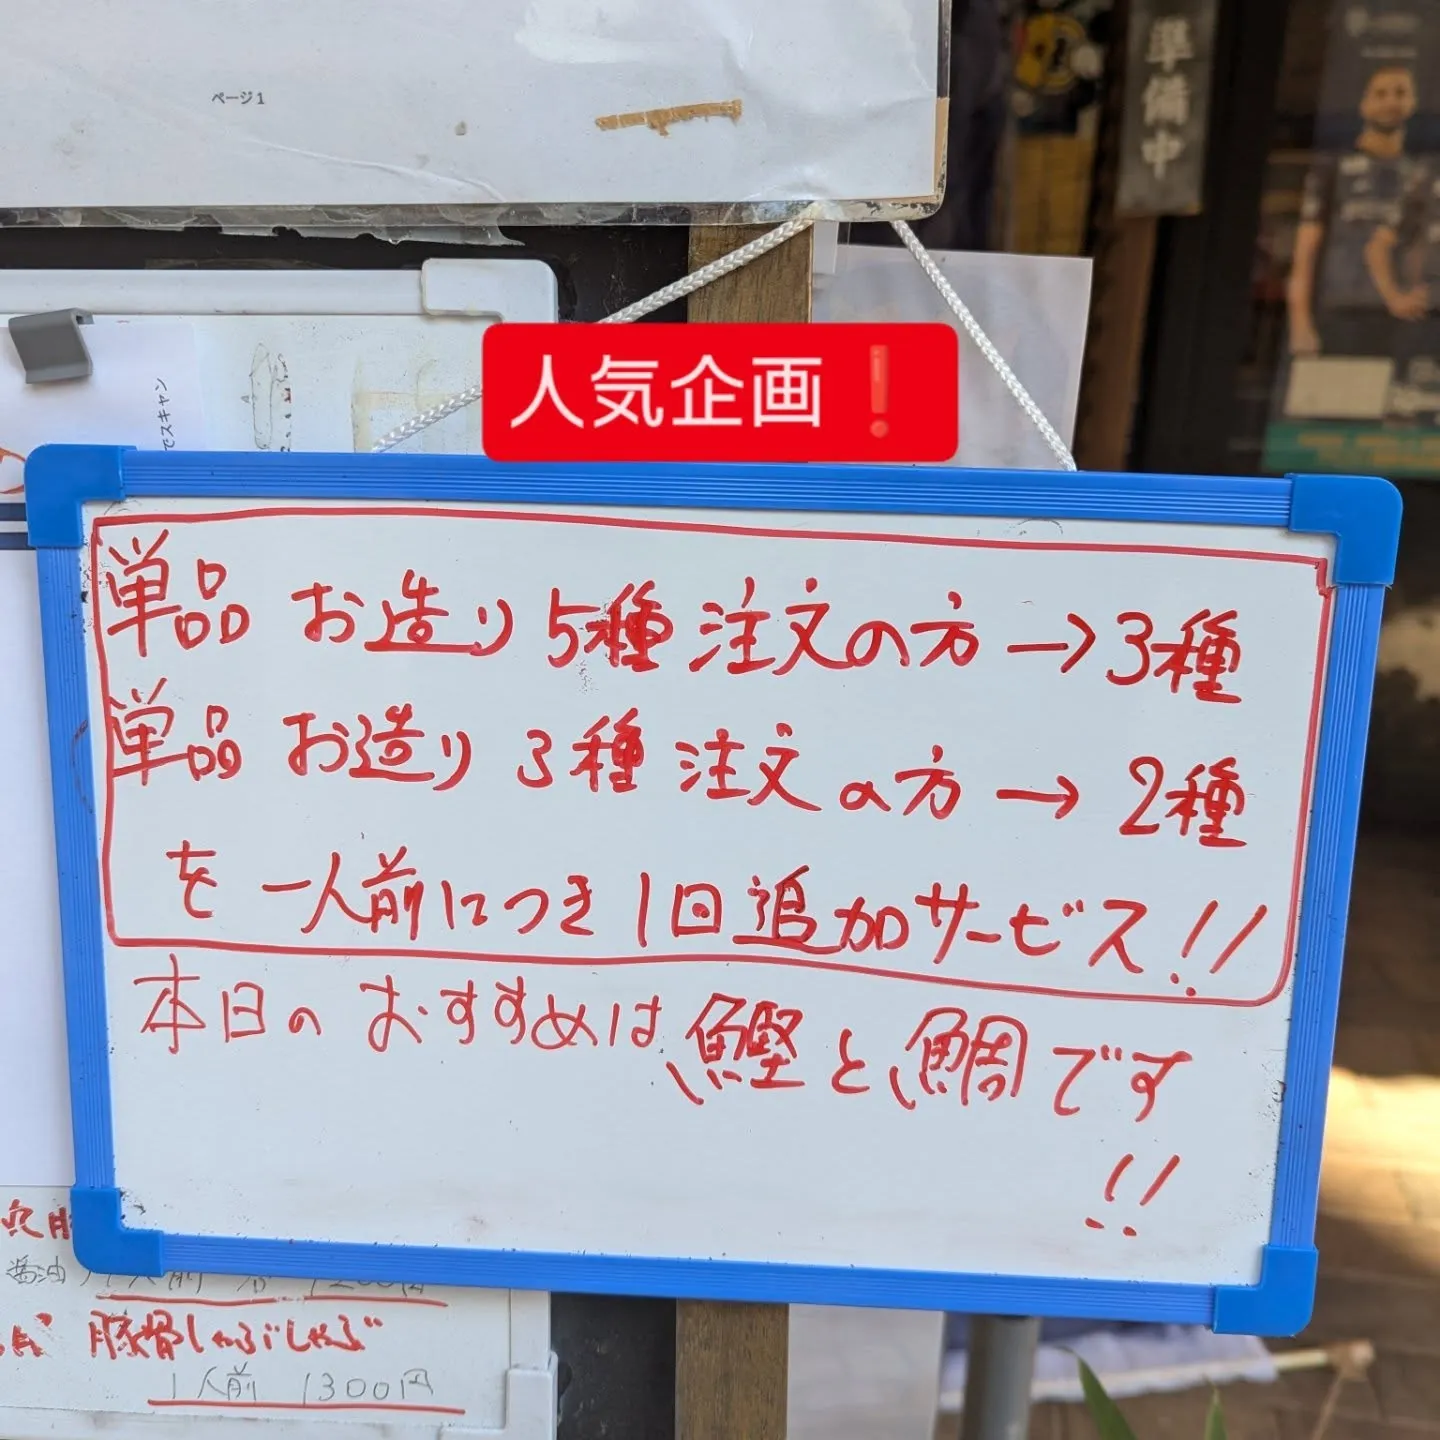 ページ1
準備中
人気企画❗
でスキャン
単品 お造り 5種 注文の方 → 3種
単品 お造り 3種 注文の方 → 2種
を 一人前につき 1回追加サービス!!
本日の おすすめは 鰹と鯛です
!!
醤油
豚骨しゃぶしゃぶ
1人前 1300円